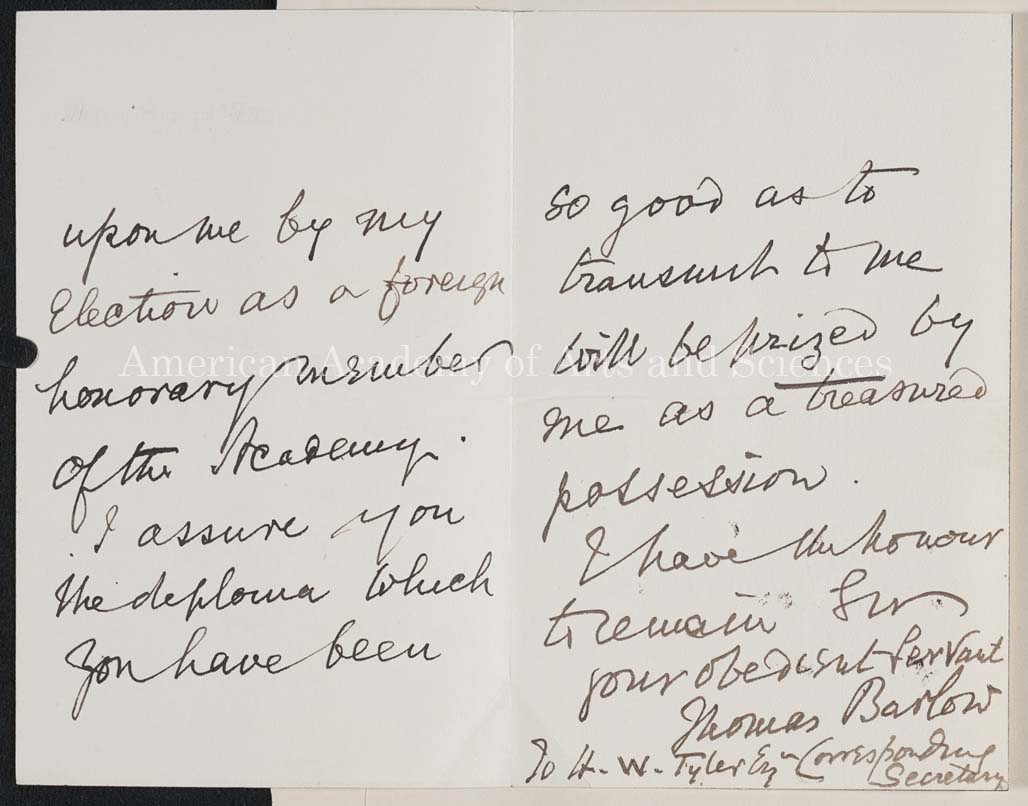 upon me by my
Election as a foreign
honorary member
of the Academy.
I assure you
the diploma which
you have been
so good as to
transmit to me
will be prized by
me as a treasured
possession.
I have the honour
to remain Sir
your obedient servant
Thomas Barlow
To H. W. Tyler Esqr Corresponding
Secretary
American Academy of Arts and Sciences